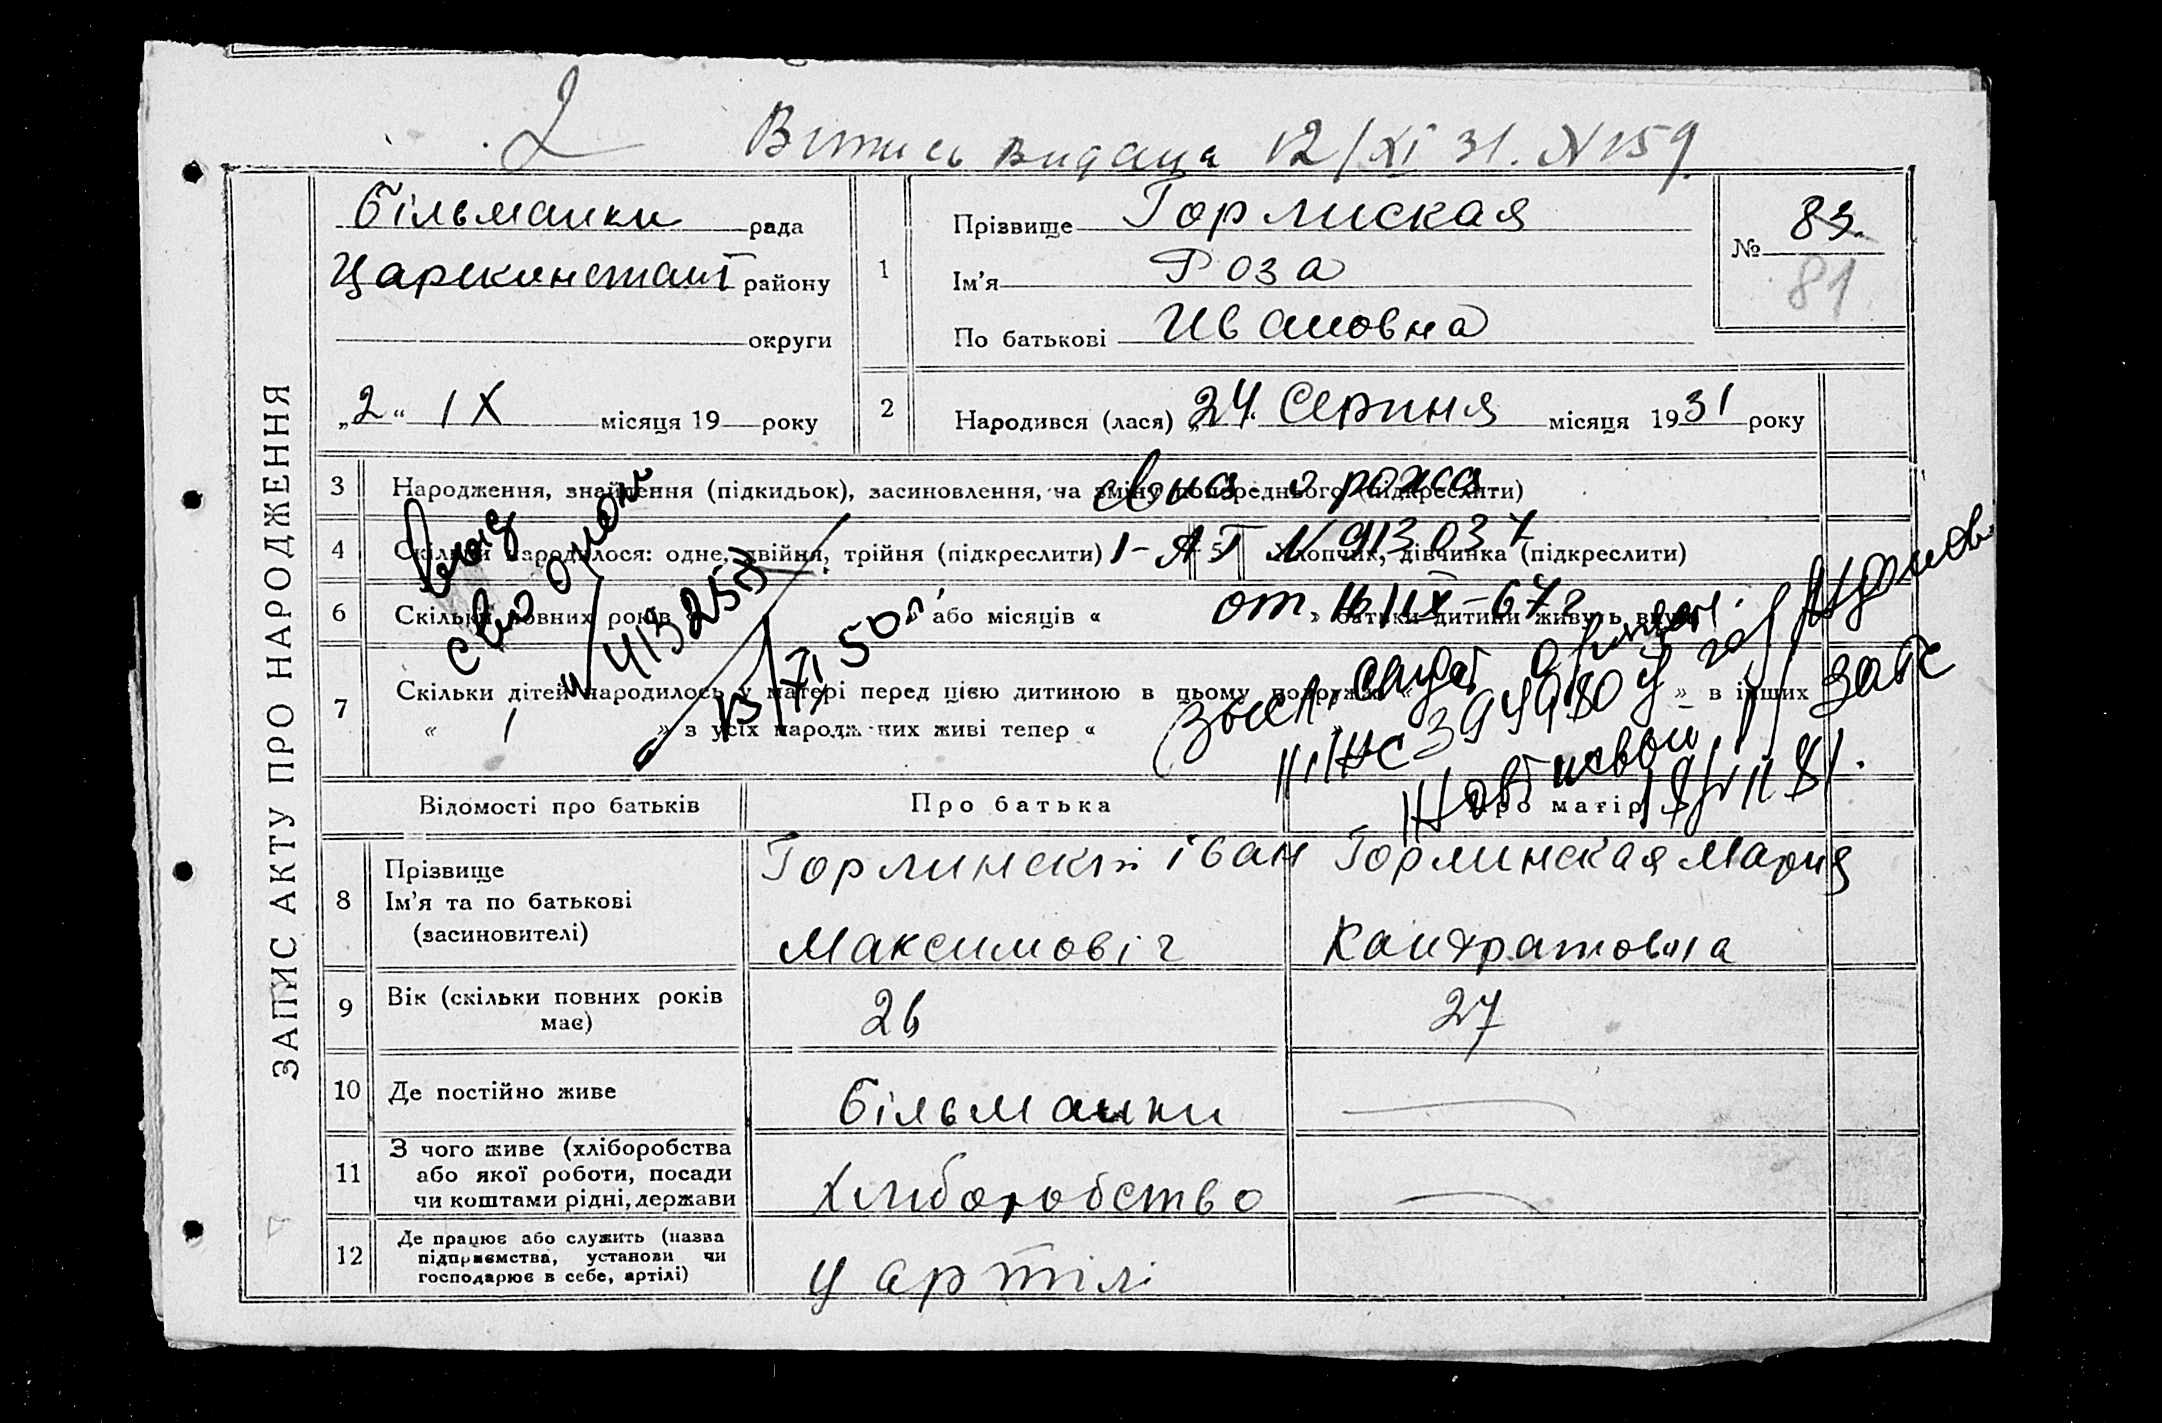 2
Витись видаца 12/XI 31. N 159
Більманки рада
Царекинстант району
округи
„2“ IX місяця 19 року
ЗАПИС АКТУ ПРО НАРОДЖЕННЯ
1
Прізвище Горлиская
Ім'я Роза
По батькові Ивановна
№ 83.
81
2 Народився (лася) „24. Серпня місяця 1931 року
3 Народження, знайдення (підкидьок), засиновлення, на зміну попереднього (підкреслити)
4 Скільки народилося: одне, двійня, трійня (підкреслити) 5 Хлопчик, дівчинка (підкреслити)
I-АП N 913037
6 Скільки повних років або місяців « » батьки дитини живуть вкупі
от 16/IX-67г
N 413251
7 Скільки дітей народилось у матері перед цією дитиною в цьому подружжі « » в інших
« 1 » з усіх народжених живі тепер «
загс
Відомості про батьків Про батька Про матір
8 Прізвище
Ім'я та по батькові
(засиновителі)
Горлинскій Іван
Максимовіч
Горлинская Мария
Кандратовна
9 Вік (скільки повних років має) 26 27
10 Де постійно живе Більманки
11 З чого живе (хліборобства
або якої роботи, посади
чи коштами рідні, держави
Хлиборобство
12 Де працює або служить (назва
підприємства, установи чи
господарює в себе, артілі)
у артілі